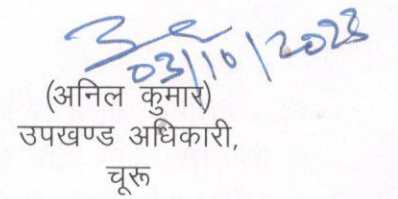 03/10/2023
(अनिल कुमार)
उपखण्ड अधिकारी,
चूरू